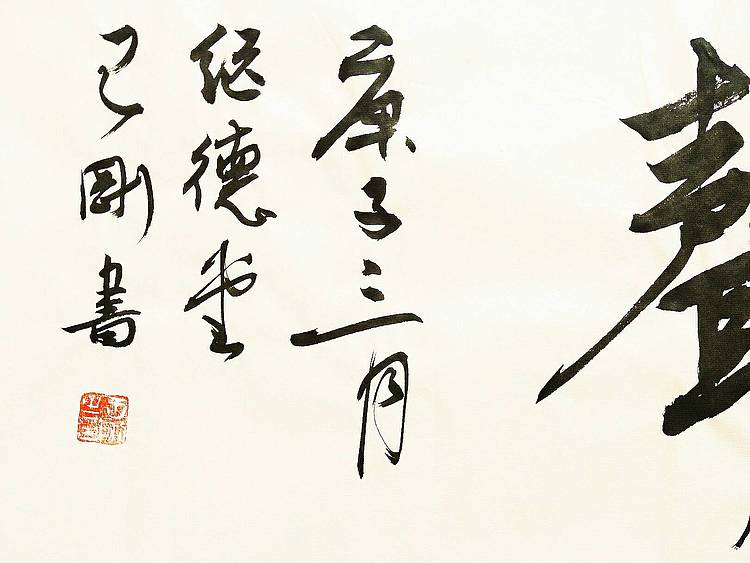 庚子三月
继德堂
己剛書